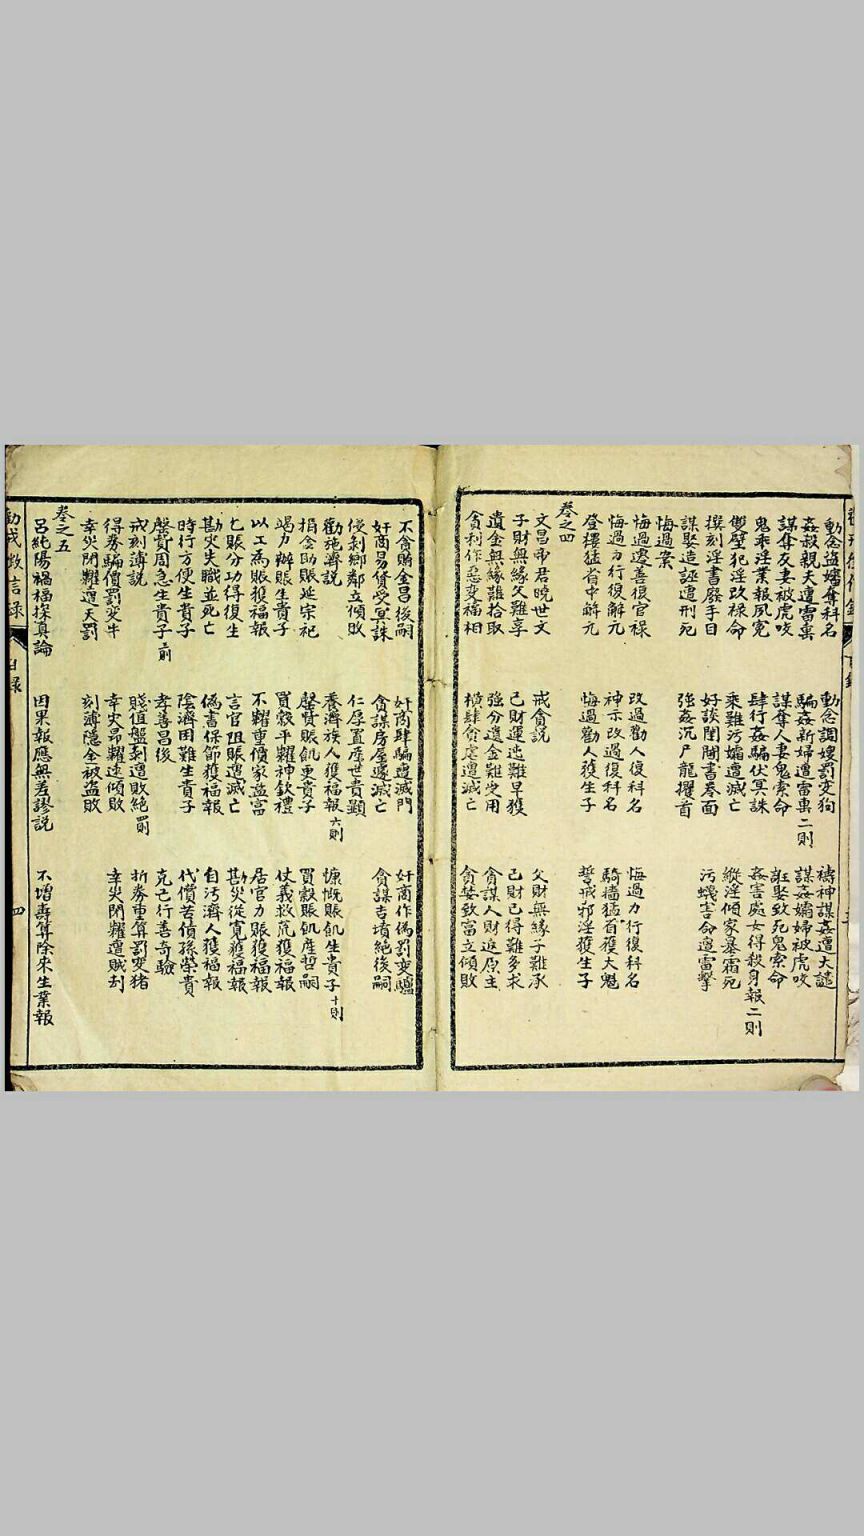 動念盜孀奪科名　動念調嫂罰变狗　禱神謀姦遭大譴
姦殺親夫遭雷擊　騙姦新婦遭雷擊二則　謀姦孀婦被虎咬
謀奪友妻被虎咬　謀奪人妻鬼索命　誑娶致死鬼索命
鬼乘淫業報夙冤　肆行姦騙伏冥誅　姦害處女得殺身報二則
雙璧犯淫改禄命　乘難污孀遭滅亡　縱淫傾家暴霜死
撰刻淫書廢手目　好談閨閫書卷面　污衊害命遭雷擊
謀娶造誣遭刑死　強姦沉尸龍攫首
悔過案
悔過遷善復官禄　改過勸人復科名　悔過力行復科名
悔過力行復解元　神示改過復科名　騎牆猛省獲大魁
登禪猛省中解元　悔過勸人獲生子　誓戒邪淫獲生子
卷之四
文昌帝君曉世文　戒貪説　父財無緣子難承
子財無緣父難享　己財運迍難早獲　己財已得難多求
遺金無緣難拾取　強分遺金難受用　貪謀人財返原主
貪利作惡变福相　横肆貪虐遭滅亡　貪婪致富立傾敗
不貪賄金昌後嗣　奸商肆騙遭滅門　奸商作偽罰变驢
奸商易貲受冥誅　貪謀房屋遭滅亡　貪謀吉墳絕後嗣
侵剝鄉鄰立傾敗　仁厚置產世貴顯
勸施濟説　養濟族人獲福報六則　慷慨賑飢生貴子十則
捐金助賑延宗祀　罄貲賑飢更貴子　買穀賑飢產哲嗣
竭力辦賑生貴子　買穀平糶神欽禮　仗義救荒獲福報
以工為賑獲福報　不糶重價家益富　居官力賑獲福報
乞賑分功得復生　言官阻賑遭滅亡　勘災從寬獲福報
勘災失職並死亡　偽書保節獲福報　自污濟人獲福報
時行方便生貴子　陰濟困難生貴子　代償苦債孫榮貴
罄貲周急生貴子二則　孝善昌後　克己行善奇驗
戒刻薄説　賤值盤剝遭敗絕四則　折券重算罰变猪
得券騙價罰变牛　幸災昂糶速傾敗　幸災閉糶遭賊刦
幸災閉糶遭天罰　刻薄隱全被盜敗
卷之五
呂純陽禍福探真論　因果報應無差謬説　不增壽算除來生業報
目錄
四